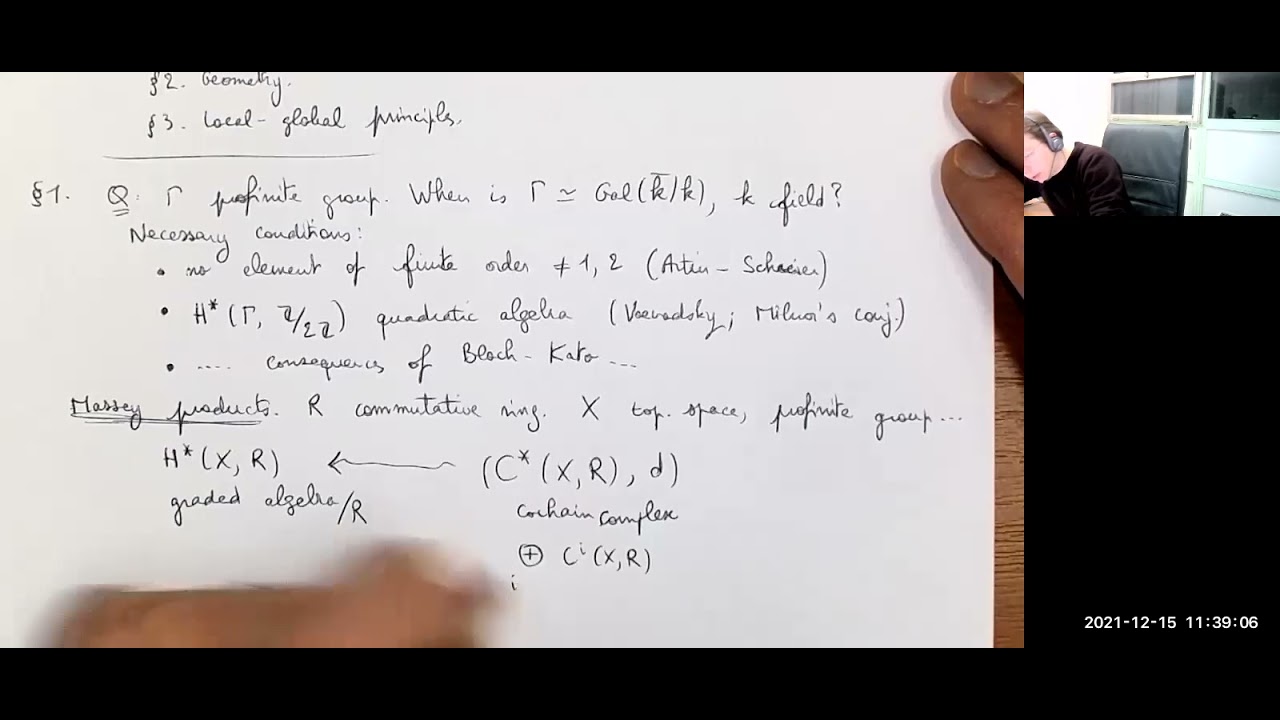 §2. Geometry.
§3. Local-global principles.
§1. Q: Γ profinite group. When is Γ ≃ Gal(k̄/k), k field?
Necessary conditions:
• no element of finite order ≠ 1, 2 (Artin-Schreier)
• H*(Γ, ℤ/2ℤ) quadratic algebra (Voevodsky; Milnor's conj.)
• .... consequences of Bloch-Kato ...
Massey products. R commutative ring. X top. space, profinite group ...
H*(X, R) ← (C*(X, R), d)
graded algebra/R cochain complex
⊕ Cⁱ(X, R)
i
2021-12-15 11:39:06